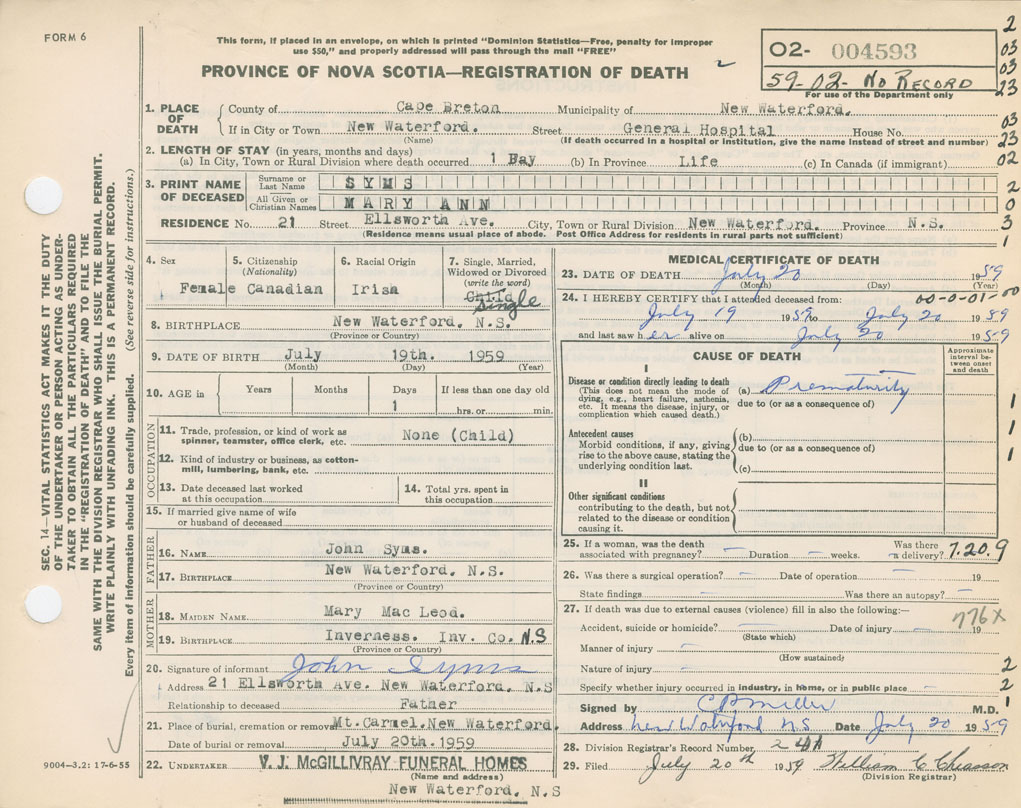 FORM 6
This form, if placed in an envelope, on which is printed "Dominion Statistics—Free, penalty for improper
use $50," and properly addressed will pass through the mail "FREE"
PROVINCE OF NOVA SCOTIA—REGISTRATION OF DEATH
02- 004593
59-02- No RECORD
For use of the Department only
2
03
03
23
03
23
02
2
0
3
1
1. PLACE OF DEATH
County of Cape Breton Municipality of New Waterford.
If in City or Town New Waterford. Street General Hospital House No.
(Name) (If death occurred in a hospital or institution, give the name instead of street and number)
2. LENGTH OF STAY (in years, months and days)
(a) In City, Town or Rural Division where death occurred 1 Day (b) In Province Life (c) In Canada (if immigrant)
3. PRINT NAME OF DECEASED
Surname or Last Name SYMS
All Given or Christian Names MARY ANN
RESIDENCE No. 21 Street Ellsworth Ave. City, Town or Rural Division New Waterford. Province N.S.
(Residence means usual place of abode. Post Office Address for residents in rural parts not sufficient)
4. Sex
Female
5. Citizenship
(Nationality)
Canadian
6. Racial Origin
Irish
7. Single, Married,
Widowed or Divorced
(write the word)
Child
single
8. BIRTHPLACE New Waterford, N.S.
(Province or Country)
9. DATE OF BIRTH July 19th. 1959
(Month) (Day) (Year)
10. AGE in
Years Months Days If less than one day old
1 hrs. or min.
OCCUPATION
11. Trade, profession, or kind of work as
spinner, teamster, office clerk, etc. None (Child)
12. Kind of industry or business, as cotton-
mill, lumbering, bank, etc.
13. Date deceased last worked
at this occupation
14. Total yrs. spent in
this occupation
15. If married give name of wife
or husband of deceased
FATHER
16. NAME John Syms.
17. BIRTHPLACE New Waterford. N.S.
(Province or Country)
MOTHER
18. MAIDEN NAME Mary Mac Leod.
19. BIRTHPLACE Inverness. Inv. Co. N.S
(Province or Country)
20. Signature of informant John Syms
Address 21 Ellsworth Ave. New Waterford, N.S
Relationship to deceased Father
21. Place of burial, cremation or removal Mt. Carmel. New Waterford.
Date of burial or removal July 20th. 1959
22. UNDERTAKER V. J. McGILLIVRAY FUNERAL HOMES
(Name and address)
New Waterford, N.S
MEDICAL CERTIFICATE OF DEATH
23. DATE OF DEATH July 20 1959
(Month) (Day) (Year)
24. I HEREBY CERTIFY that I attended deceased from: 00-0-01-00
July 19 1959 to July 20 1959
and last saw her alive on July 20 1959
CAUSE OF DEATH
Approximate
interval be-
tween onset
and death
I
Disease or condition directly leading to death
(This does not mean the mode of
dying, e.g., heart failure, asthenia,
etc. It means the disease, injury, or
complication which caused death.)
(a) Prematurity
due to (or as a consequence of)
Antecedent causes
Morbid conditions, if any, giving
rise to the above cause, stating the
underlying condition last.
(b)
due to (or as a consequence of)
(c)
II
Other significant conditions
contributing to the death, but not
related to the disease or condition
causing it.
1
1
1
25. If a woman, was the death
associated with pregnancy? — Duration — weeks. Was there
a delivery? 7.20.9
26. Was there a surgical operation? — Date of operation — 19
State findings Was there an autopsy? —
27. If death was due to external causes (violence) fill in also the following:—
776X
Accident, suicide or homicide? Date of injury 19
(State which)
Manner of injury —
(How sustained)
Nature of injury —
2
Specify whether injury occurred in industry, in home, or in public place —
2
Signed by C B Miller M.D.
1
Address New Waterford N.S Date July 20 1959
28. Division Registrar's Record Number
29. Filed July 20th 1959 William C Chiasson
(Division Registrar)
SEC. 14—VITAL STATISTICS ACT MAKES IT THE DUTY
OF THE UNDERTAKER OR PERSON ACTING AS UNDER-
TAKER TO OBTAIN ALL THE PARTICULARS REQUIRED
IN THE "REGISTRATION OF DEATH" AND TO FILE THE
SAME WITH THE DIVISION REGISTRAR WHO SHALL ISSUE THE BURIAL PERMIT.
WRITE PLAINLY WITH UNFADING INK. THIS IS A PERMANENT RECORD.
Every item of information should be carefully supplied. (See reverse side for instructions.)
9004—3.2: 17-6-55